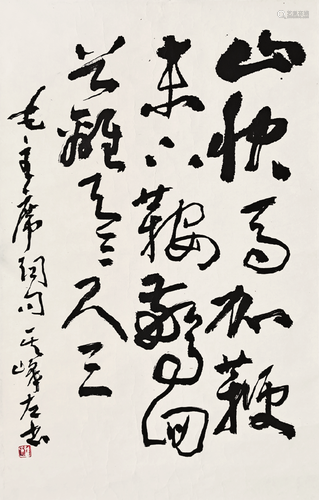 山快馬加鞭
未下鞍驚回
首離天三尺三
毛主席詞句其峰左書